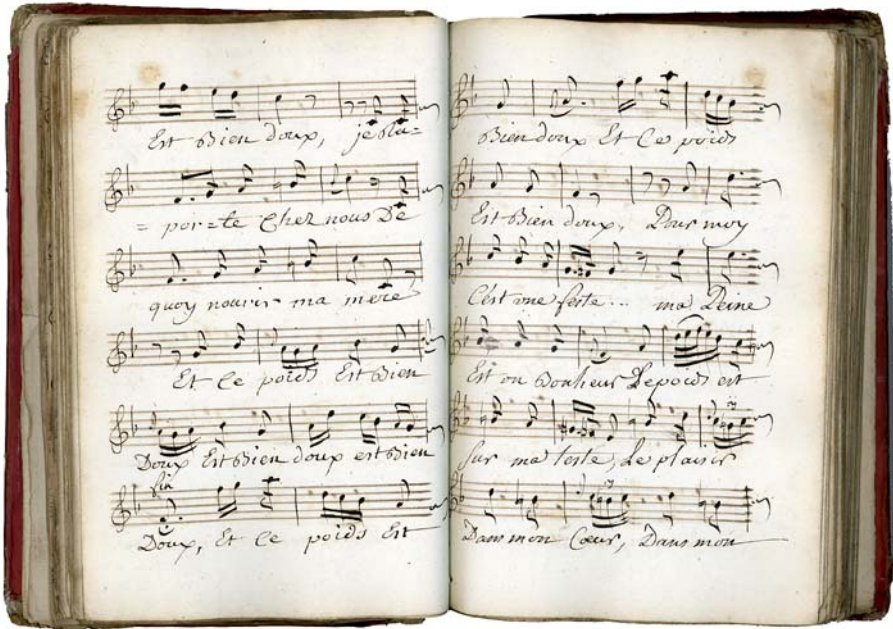 Est Bien doux, je Ra=
= por=te Chez nous De
quoy nourir ma mere
Et Ce poids Est Bien
Doux Est Bien doux est Bien
fin
Doux, Et Ce poids Est
Bien doux Et Ce poids
Est Bien doux, Pour moy
C'est une feste... ma Peine
Est un Bonheur Le poids est
Sur ma teste, Le plaisir
Dans mon Cœur, Dans mon